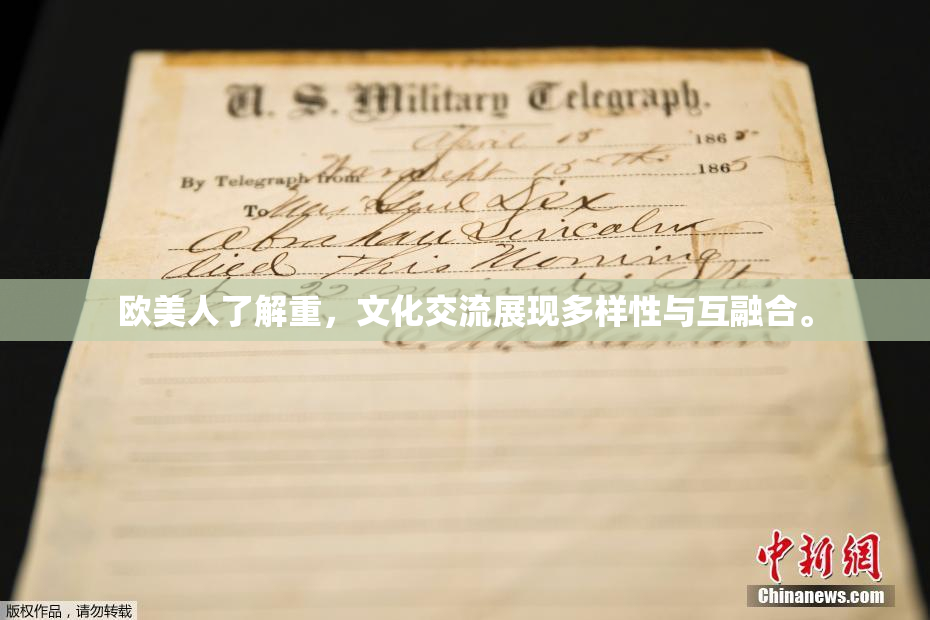 U. S. Military Telegraph.
April 15 1865
By Telegraph from War Dept 15th 1865
To Maj Genl Dix
Abraham Lincoln
died This Morning
at 22 minutes after
欧美人了解重，文化交流展现多样性与互融合。
E. M. Stanton
中新网
Chinanews.com
版权作品，请勿转载